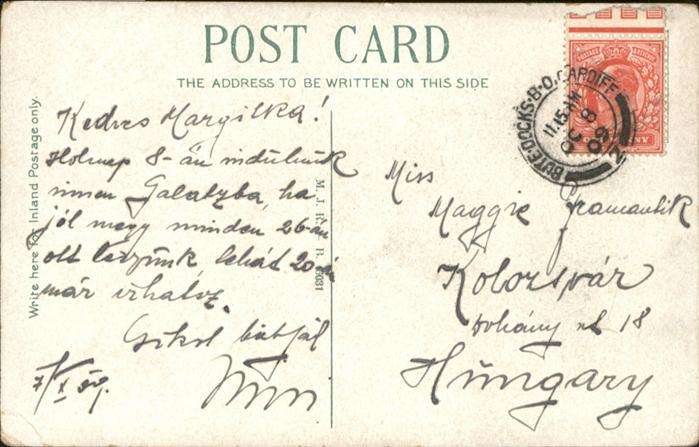 POST CARD
THE ADDRESS TO BE WRITTEN ON THIS SIDE
Write here for Inland Postage only.
Kedves Margitka!
Holnap 8-án indulunk
innen Galatzba, ha
jól megy minden 26-án
ott leszünk tehát 20-án
már írhatsz.
7/X 09.
M. J. R. B.
BUTE-DOCKS·B·O·CARDIFF
11.15 AM
OC 8
09
2
Miss
Maggie
Kolozsvár
Dohány u 18
Hungary